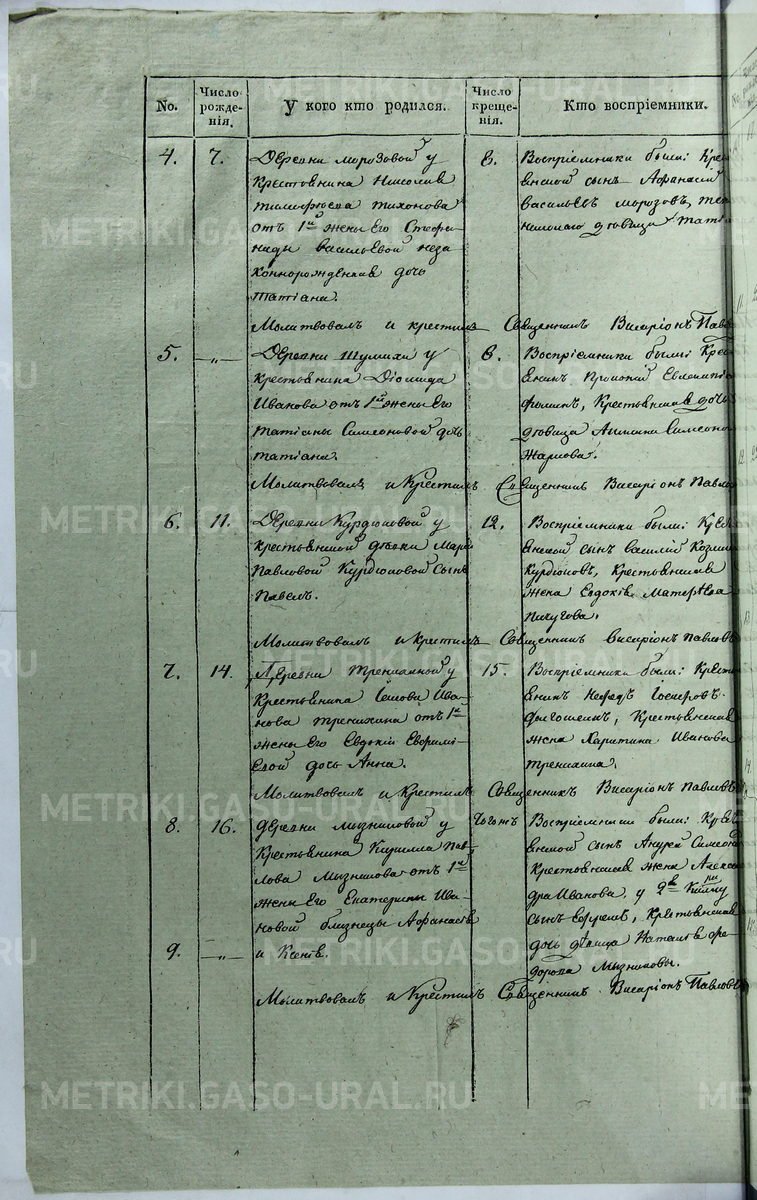 No.
Число рожде-нія.
У кого кто родился.
Число креще-нія.
Кто воспріемники.
4. 7. Деревни Морозовой у
Крестьянина Николая
Тимофеева Тихонова
отъ 1й жены его Стефа-
ниды Васильевой неза-
коннорожденная дочь
Татіана.
8. Воспріемники были: Крес
янской сынъ Афанасій
Васильевъ Морозовъ,
Николая дѣвица Татіа
Молитвовалъ и крестилъ Священникъ Висаріонъ Павло
5. —„— Деревни Шумихи у
Крестьянина Діомида
Иванова отъ 1й жены его
Татіаны Симеоновой дочь
Татіана.
8. Воспріемники были: Крес
янинъ Прокопій Евлампіе
Фоминъ, Крестьянская дочь
дѣвица Симеоно
Жаркова.
Молитвовалъ и Крестилъ Священникъ Висаріонъ Павло
6. 11. Деревни Курдюковой у
крестьянской дѣвки Маріи
Павловой Курдюковой сынъ
Павелъ.
12. Воспріемники были: Крес
янской сынъ Василій Козмин
Курдюковъ, Крестьянская
жена Евдокія
Пичугова.
Молитвовалъ и Крестилъ Священникъ Висаріонъ Павловъ
7. 14. Деревни Тренихиной у
Крестьянина Іакова Ива-
нова Тренихина отъ 1й
жены его Евдокіи Ефимі-
евой дочь Анна.
15. Воспріемники были: Кресть
янинъ
Крестьянская
жена Харитина Иванова
Тренихина.
Молитвовалъ и Крестилъ Священникъ Висаріонъ Павловъ
8. 16. Деревни Мызниковой у
Крестьянина Кирилла Пав-
лова Мызникова отъ 1й
жены его Екатерины Ива-
новой близнецы Афанасія
9. —„— и Ксенія.
Тогожъ Воспріемники были: Крес
янской сынъ Андрей Симеоно
Крестьянская жена Алексан
дра Иванова, у 2й
сынъ Ефремъ, Крестьянская
дочь дѣвица Наталія Фе-
дорова Мызниковы.
Молитвовалъ и Крестилъ Священникъ Висаріонъ Павловъ
METRIKI.GASO-URAL.RU
METRIKI.GASO-URAL.RU
METRIKI.GASO-URAL.RU
METRIKI.GASO-URAL.RU
METRIKI.GASO-URAL.RU
METRIKI.GASO-URAL.RU